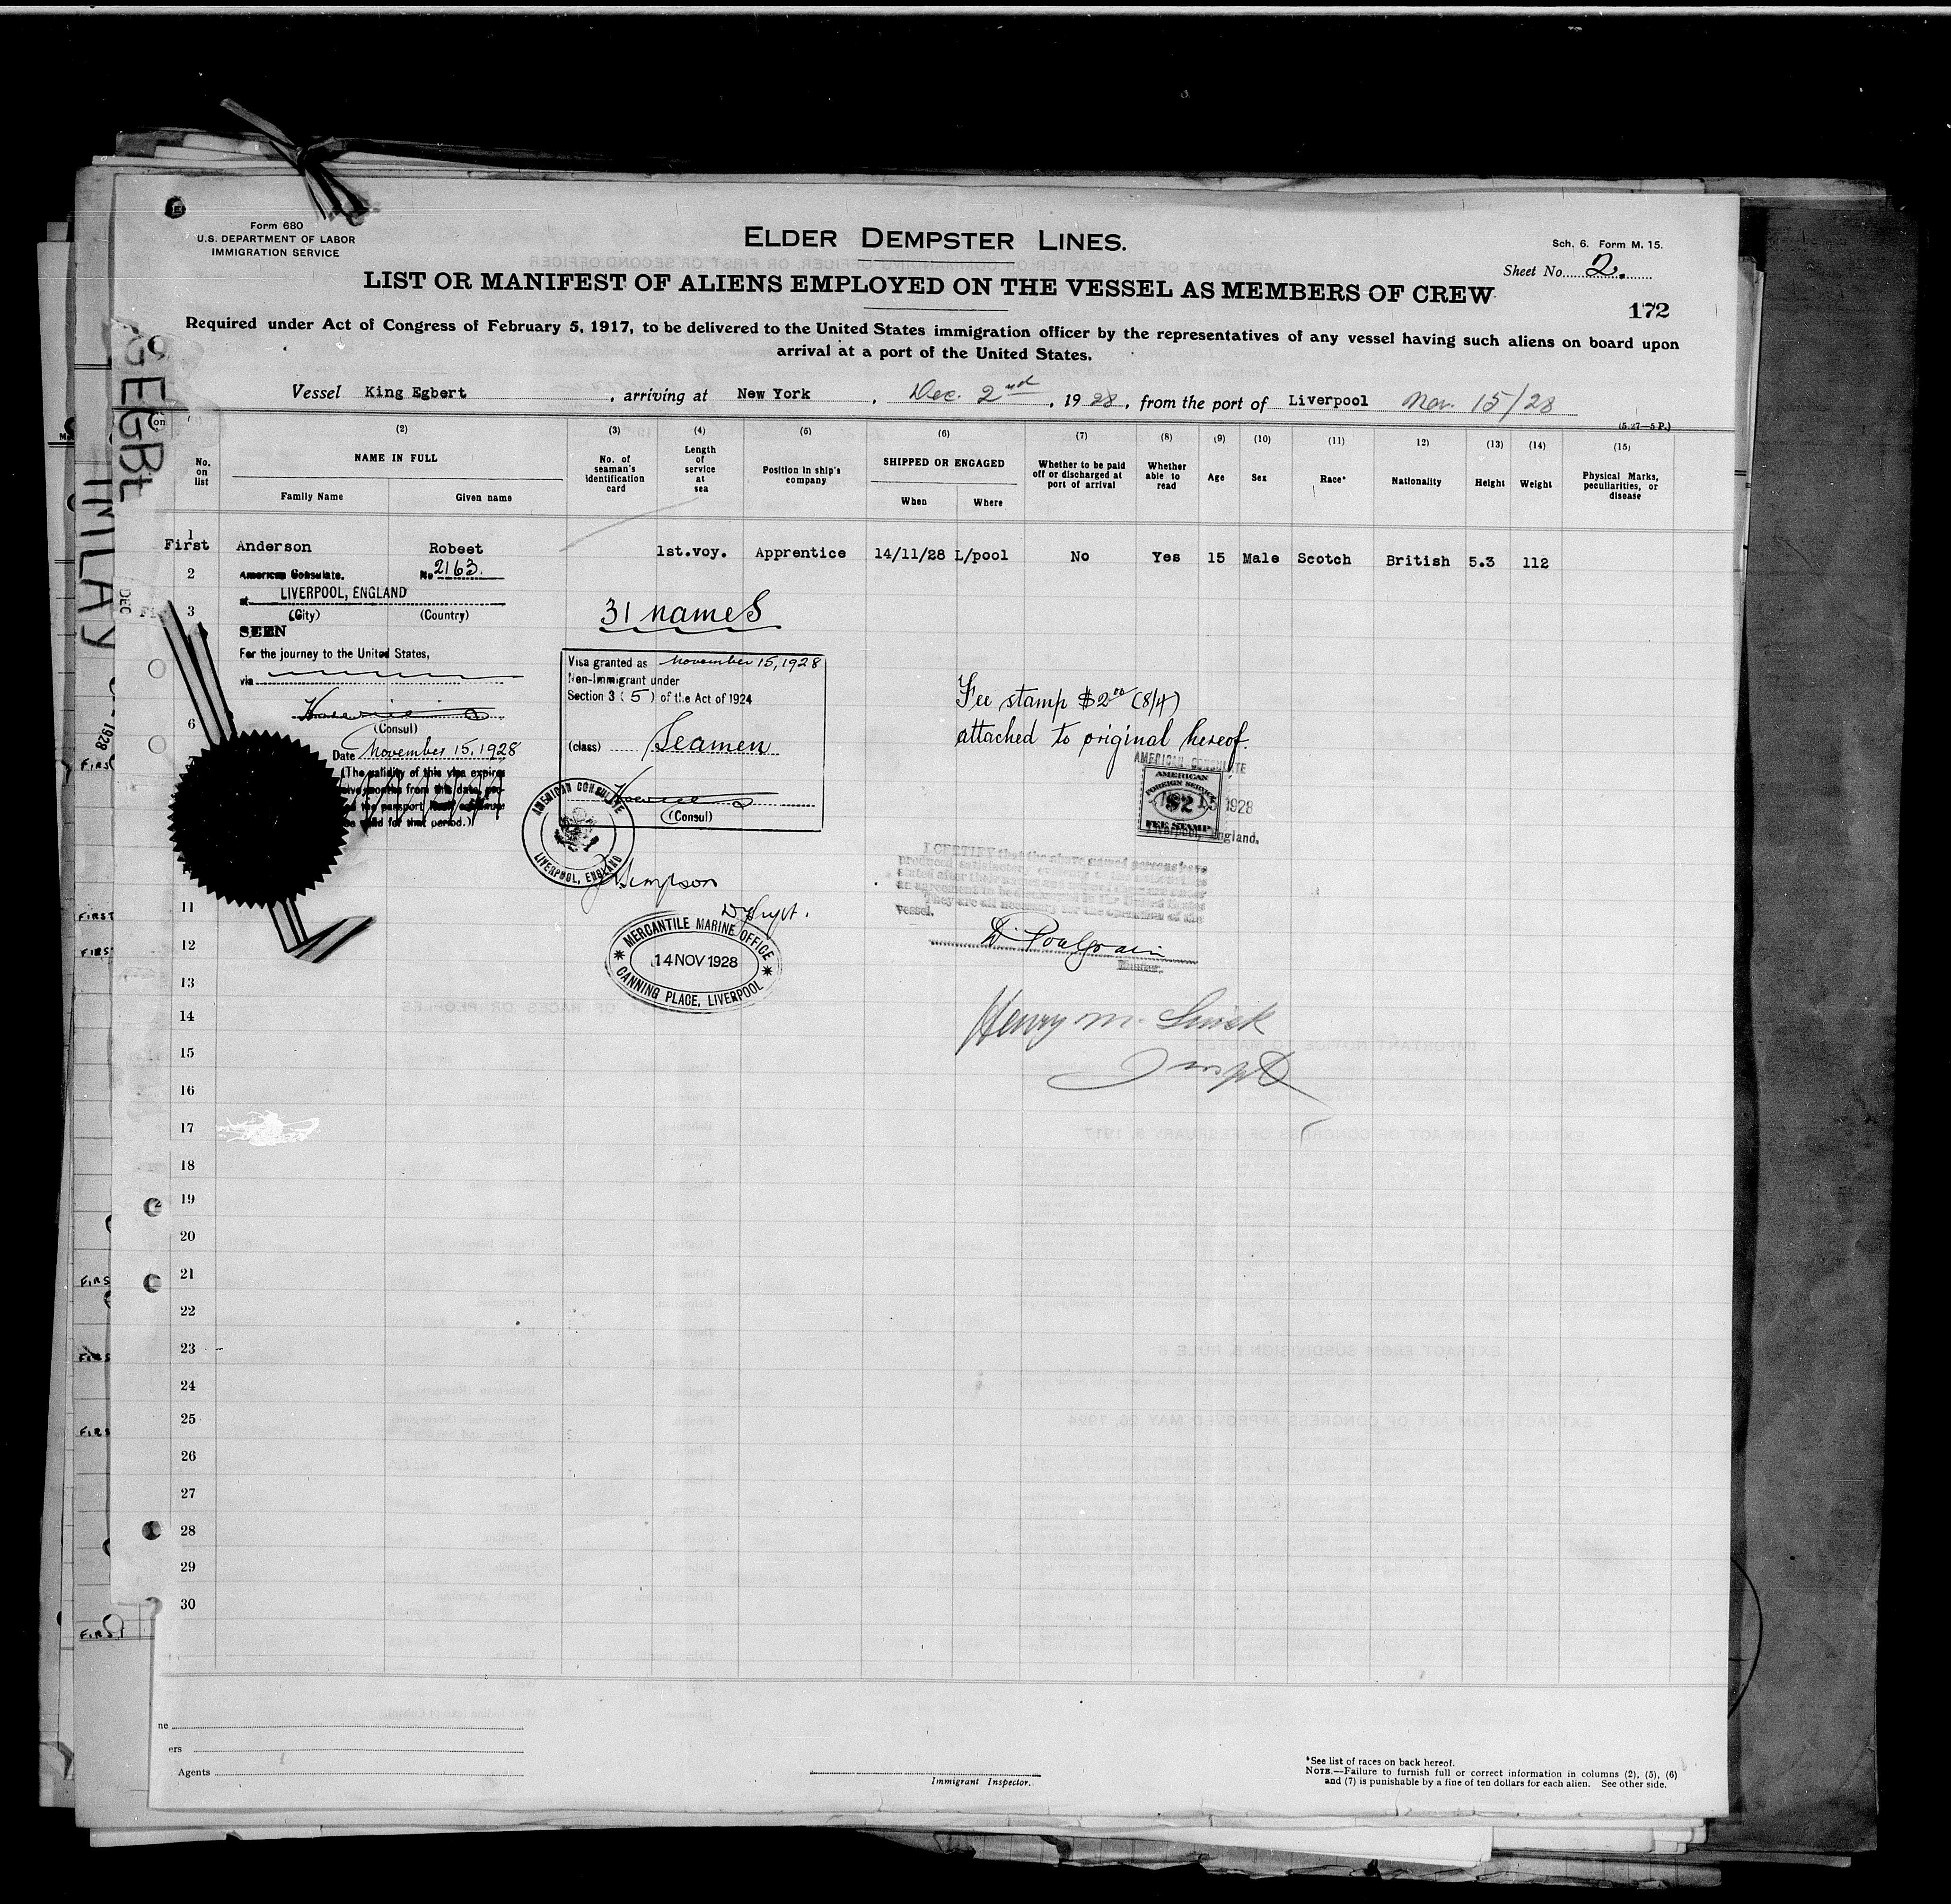 Form 680
U.S. DEPARTMENT OF LABOR
IMMIGRATION SERVICE
ELDER DEMPSTER LINES.
Sch. 6. Form M. 15.
Sheet No. 2.
LIST OR MANIFEST OF ALIENS EMPLOYED ON THE VESSEL AS MEMBERS OF CREW
172
Required under Act of Congress of February 5, 1917, to be delivered to the United States immigration officer by the representatives of any vessel having such aliens on board upon
arrival at a port of the United States.
Vessel King Egbert, arriving at New York, Dec. 2nd, 1928, from the port of Liverpool Nov. 15/28
(5.27—5 P.)
(2) (3) (4) (5) (6) (7) (8) (9) (10) (11) 12) (13) (14) (15)
No. on list
NAME IN FULL
Family Name Given name
No. of seaman's identification card
Length of service at sea
Position in ship's company
SHIPPED OR ENGAGED
When Where
Whether to be paid off or discharged at port of arrival
Whether able to read
Age
Sex
Race*
Nationality
Height
Weight
Physical Marks, peculiarities, or disease
1
First Anderson Robeet 1st.voy. Apprentice 14/11/28 L/pool No Yes 15 Male Scotch British 5.3 112
2
American Consulate. No 2163.
at LIVERPOOL, ENGLAND
3
(City) (Country)
SEEN
For the journey to the United States,
via
(Consul)
Date November 15, 1928
(The validity of this visa expires
31 names
Visa granted as November 15, 1928
Non-Immigrant under
Section 3 (5) of the Act of 1924
(class) Seamen
(Consul)
AMERICAN CONSULATE
LIVERPOOL, ENGLAND
Fee stamp $2.00 (8/4)
attached to original hereof.
AMERICAN CONSULATE
AMERICAN
FOREIGN SERVICE
$2
FEE STAMP
15 1928
Liverpool, England.
I CERTIFY that the above named persons have
vessel.
Simpson
D/Supt.
MERCANTILE MARINE OFFICE
14 NOV 1928
CANNING PLACE, LIVERPOOL
D. Poulgrain
Master.
Henry M.
Inspt
6
11
12
13
14
15
16
17
18
19
20
21
22
23
24
25
26
27
28
29
30
Agents
Immigrant Inspector.
*See list of races on back hereof.
NOTE.—Failure to furnish full or correct information in columns (2), (5), (6)
and (7) is punishable by a fine of ten dollars for each alien. See other side.